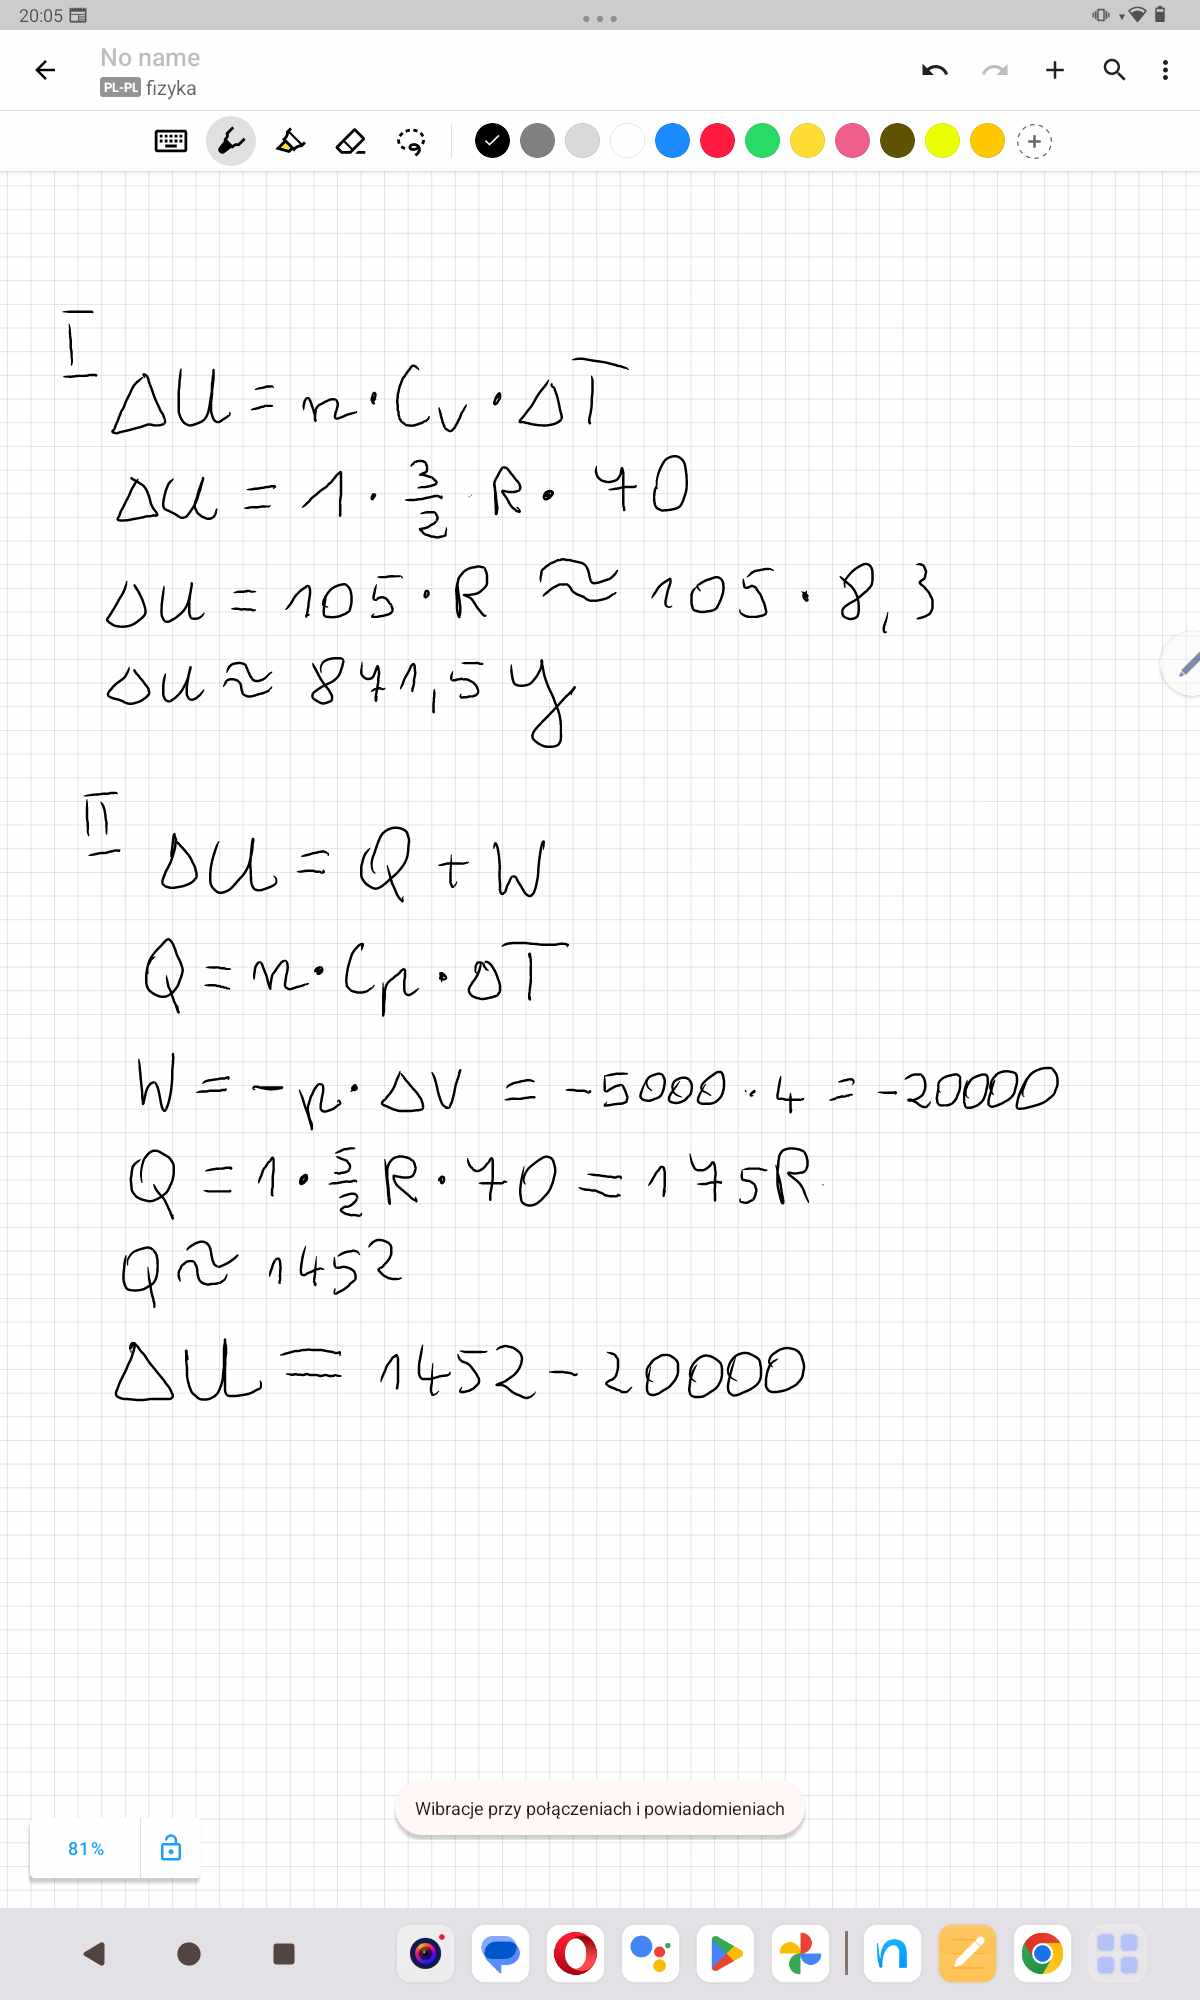 20:05
No name
PL-PL fizyka
I
ΔU = n · Cv · ΔT
ΔU = 1 · 3/2 · R · 70
ΔU = 105 · R ≈ 105 · 8,3
ΔU ≈ 871,5 J
II
ΔU = Q + W
Q = n · Cp · ΔT
W = -p · ΔV = -5000 · 4 = -20000
Q = 1 · 5/2 R · 70 = 175R
Q ≈ 1452
ΔU = 1452 - 20000
Wibracje przy połączeniach i powiadomieniach
81%